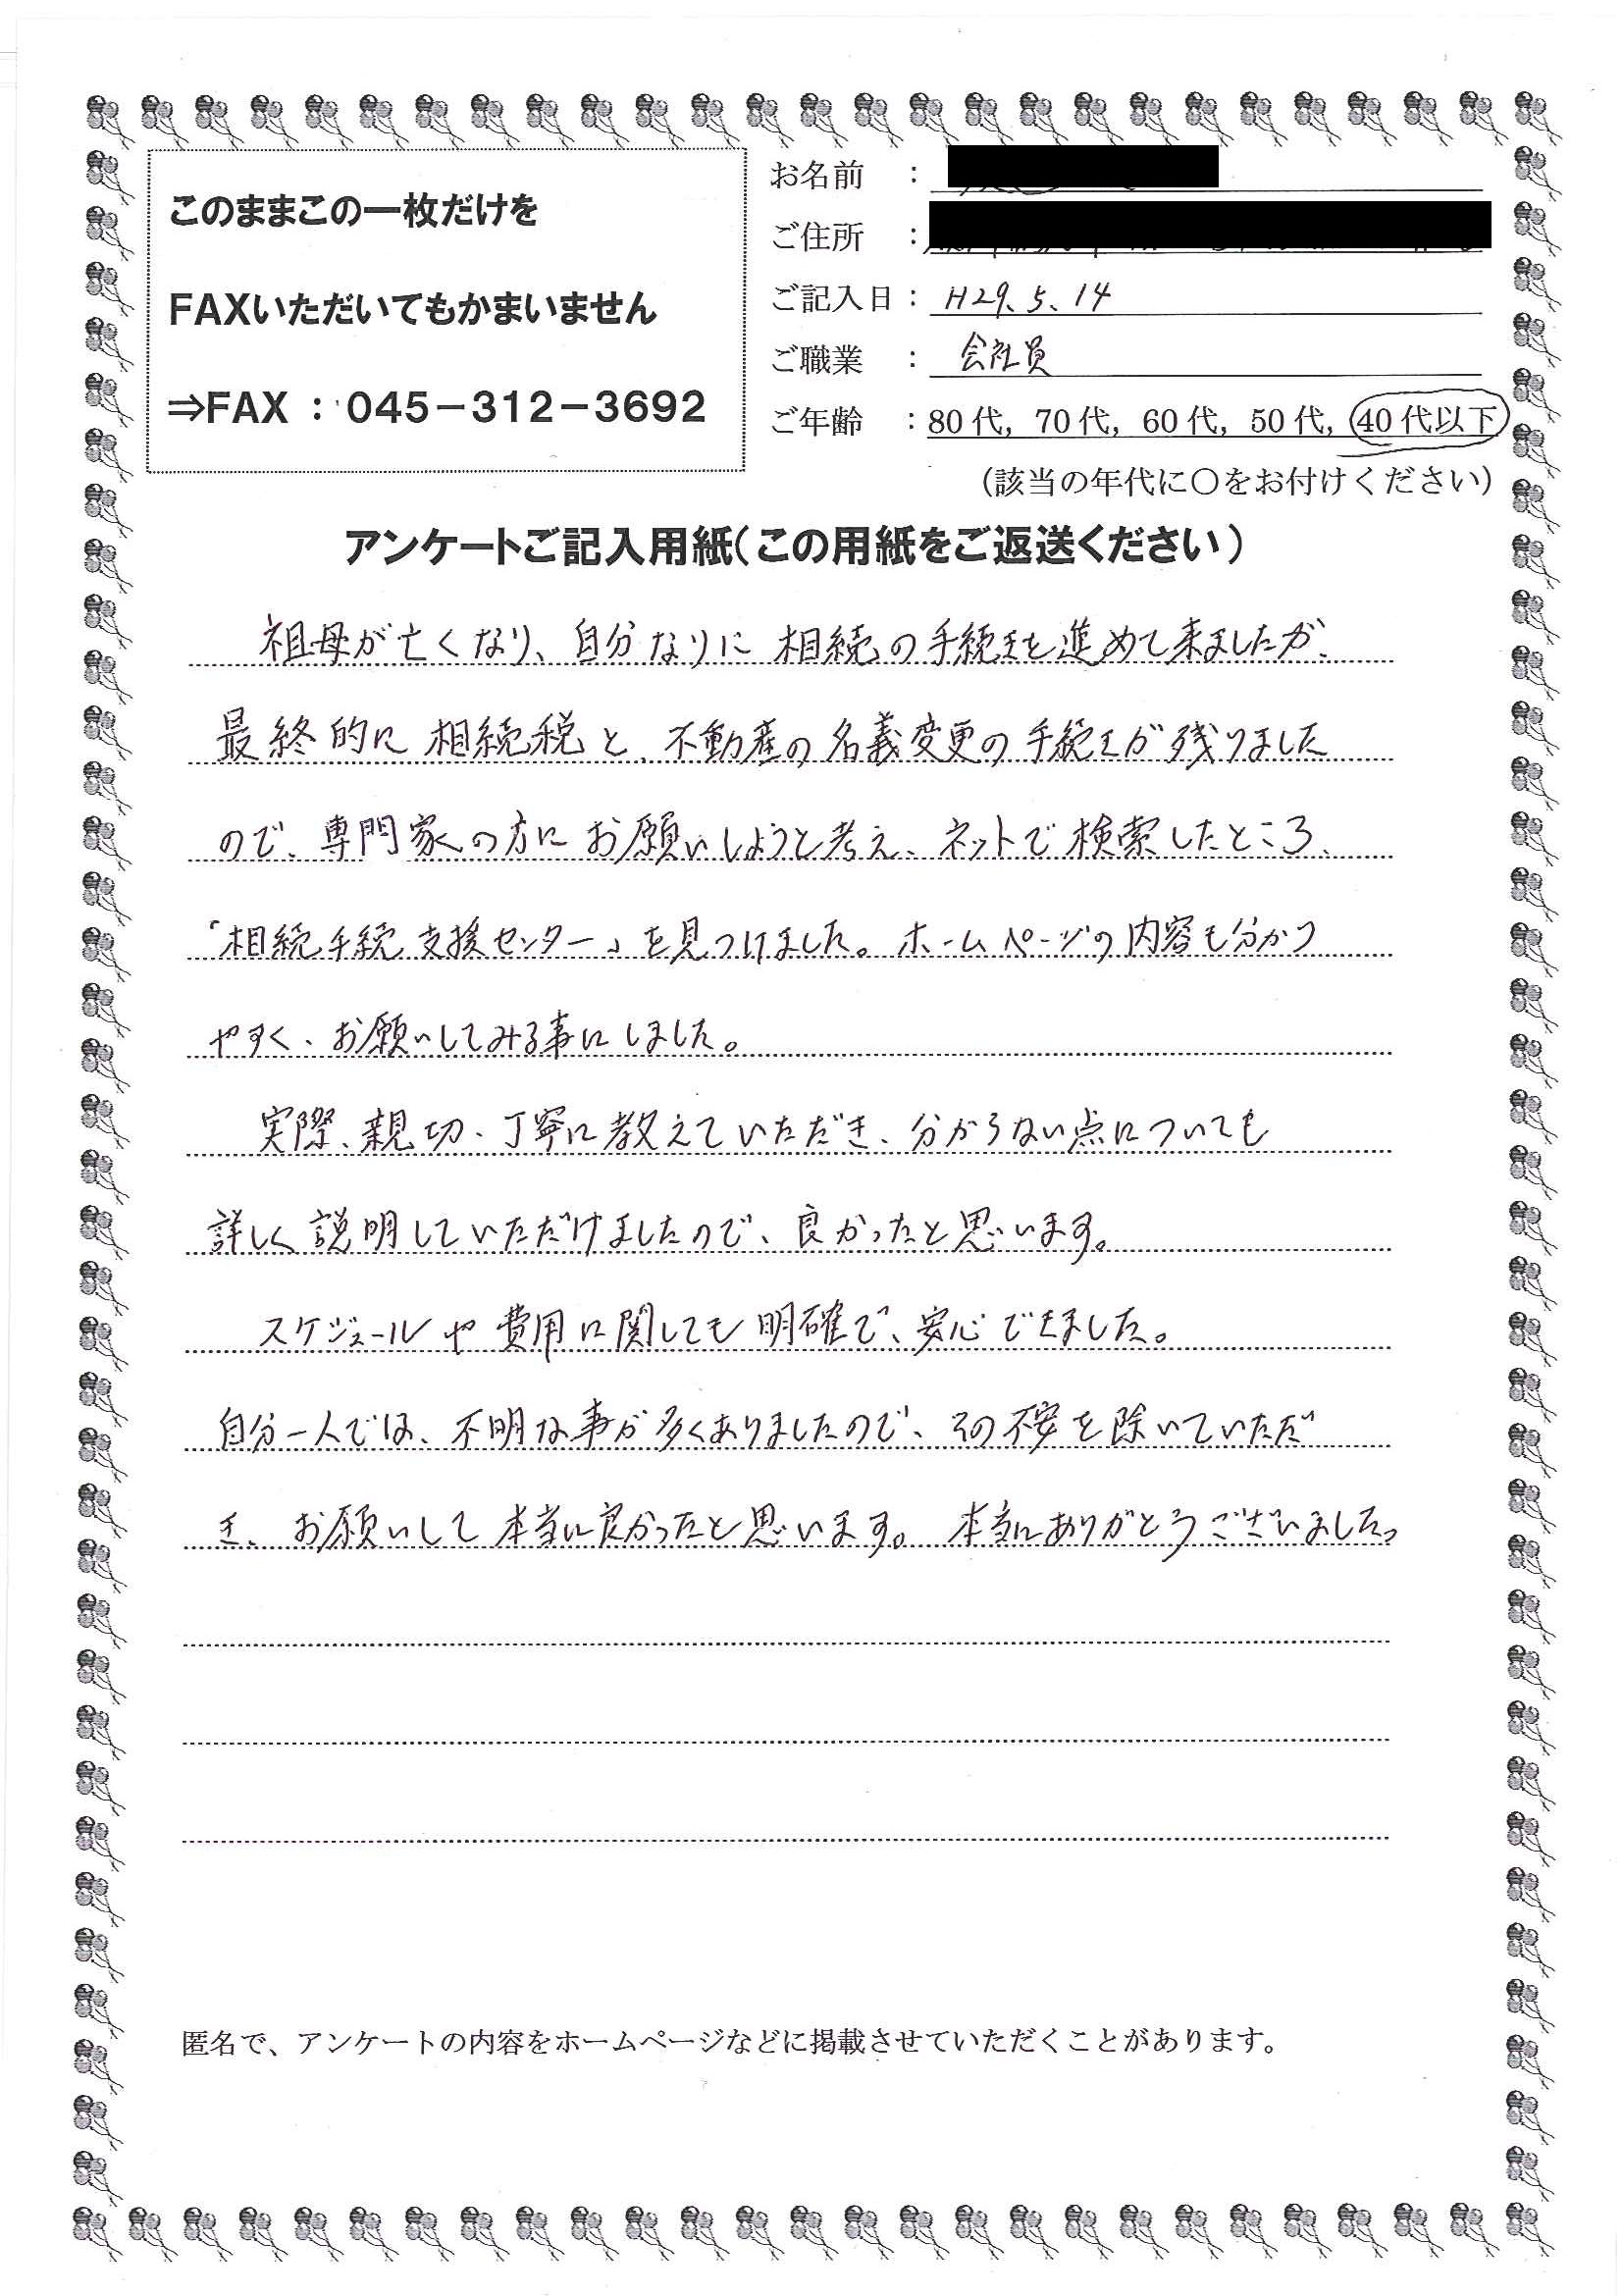 このままこの一枚だけを
FAXいただいてもかまいません
⇒FAX ： 045－312－3692
お名前 ：
ご住所 ：
ご記入日 ： H29.5.14
ご職業 ： 会社員
ご年齢 ： 80代, 70代, 60代, 50代, 40代以下
（該当の年代に〇をお付けください）
アンケートご記入用紙（この用紙をご返送ください）
祖母が亡くなり、自分なりに相続の手続きを進めて来ましたが、
最終的に相続税と、不動産の名義変更の手続きが残りました
ので、専門家の方にお願いしようと考え、ネットで検索したところ、
「相続手続支援センター」を見つけました。ホームページの内容も分かり
やすく、お願いしてみる事にしました。
実際、親切、丁寧に教えていただき、分からない点についても
詳しく説明していただけましたので、良かったと思います。
スケジュールや費用に関しても明確で、安心できました。
自分一人では、不明な事が多くありましたので、その不安を除いていただ
き、お願いして本当に良かったと思います。本当にありがとうございました。
匿名で、アンケートの内容をホームページなどに掲載させていただくことがあります。